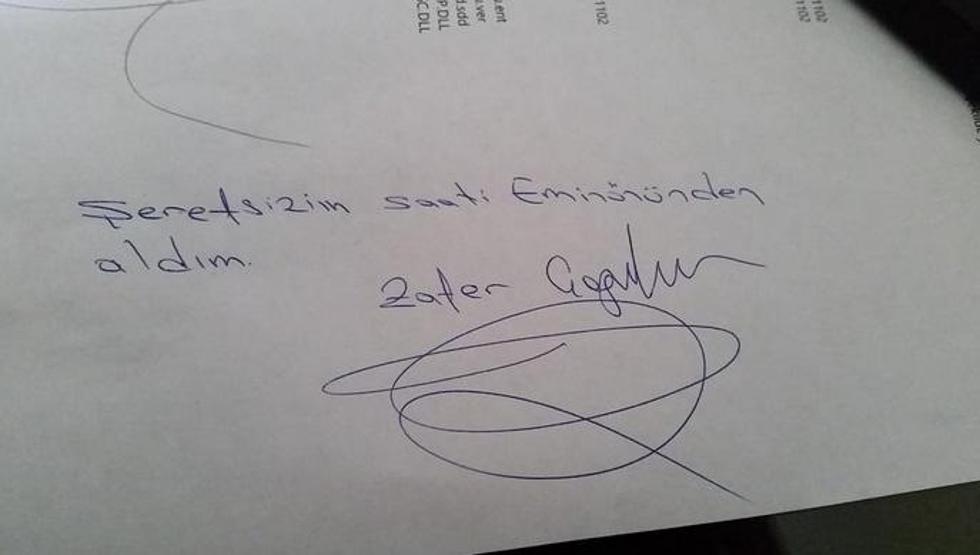 1102
1102
1102
.ent
.ver
d.sdd
P.DLL
C.DLL
Şerefsizim saati Eminönünden
aldım.
Zafer